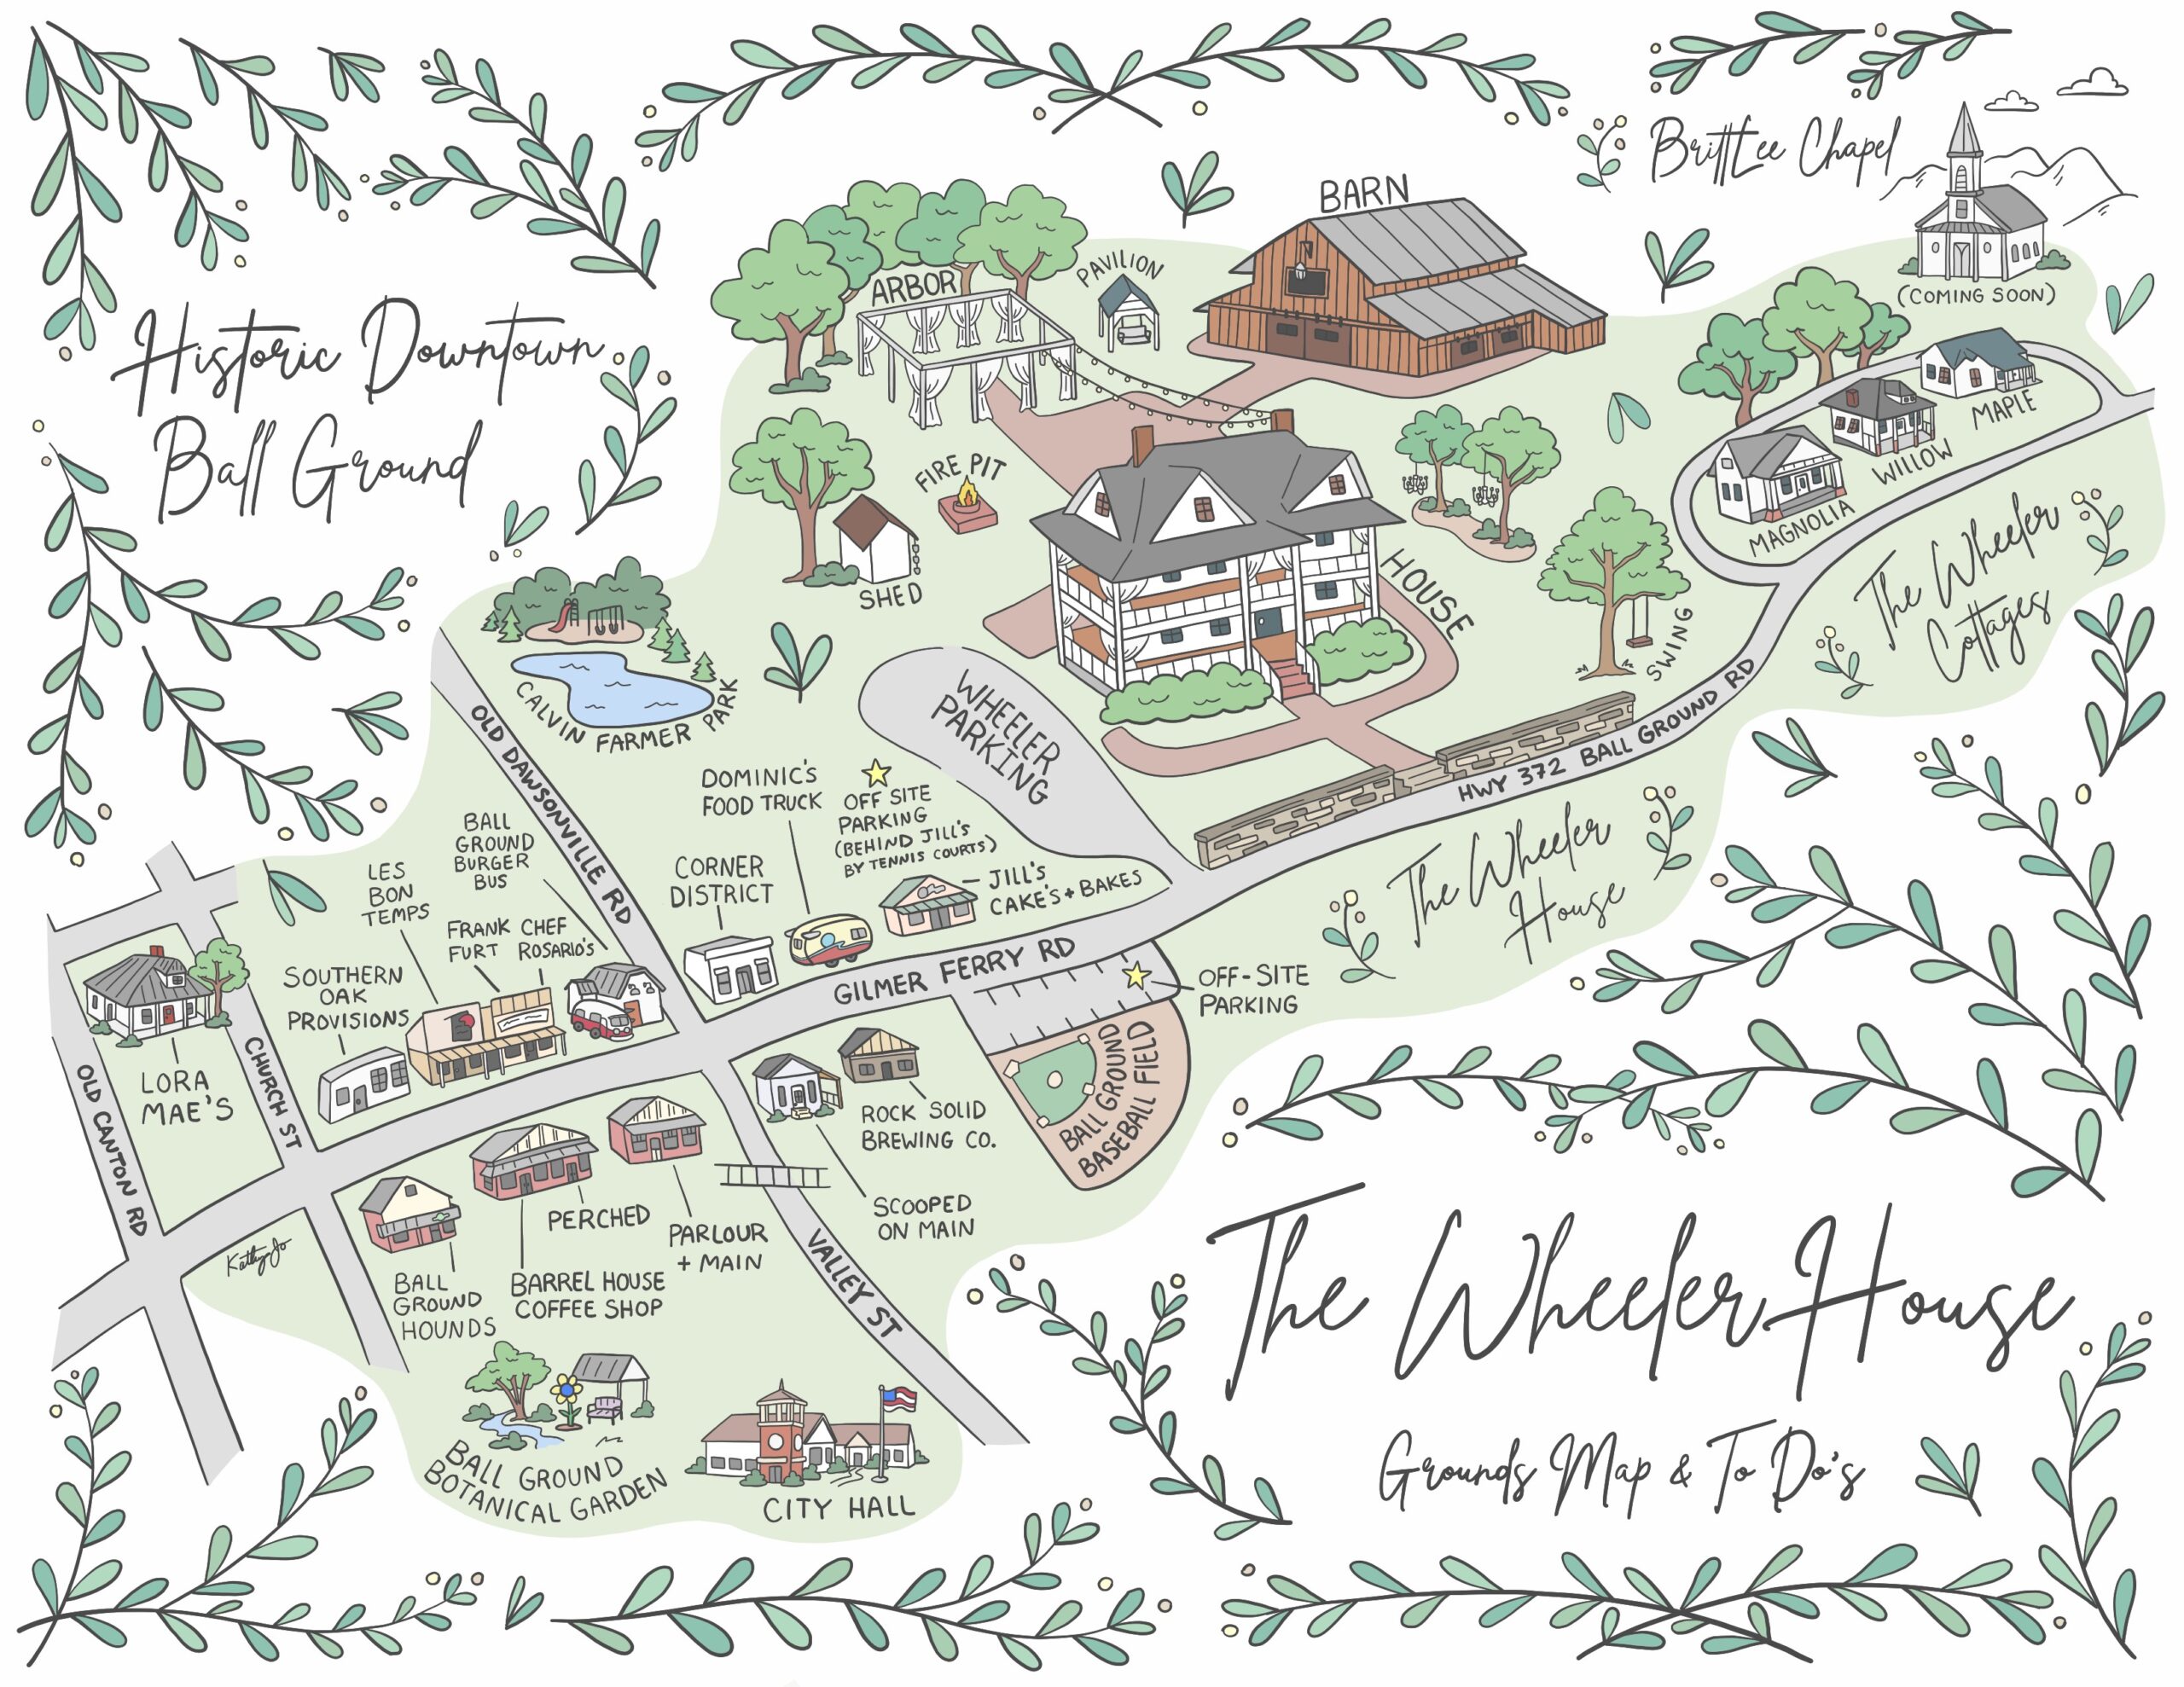 BrittLee Chapel
(COMING SOON)
BARN
PAVILION
ARBOR
Historic Downtown
Ball Ground
MAPLE
WILLOW
MAGNOLIA
The Wheeler
Cottages
FIRE PIT
SHED
HOUSE
SWING
CALVIN FARMER PARK
WHEELER
PARKING
HWY 372 BALL GROUND RD
The Wheeler
House
OLD DAWSONVILLE RD
DOMINIC'S
FOOD TRUCK
OFF SITE
PARKING
(BEHIND JILL'S
BY TENNIS COURTS)
JILL'S
CAKE'S + BAKES
CORNER
DISTRICT
BALL
GROUND
BURGER
BUS
LES
BON
TEMPS
FRANK
FURT
CHEF
ROSARIO'S
SOUTHERN
OAK
PROVISIONS
GILMER FERRY RD
OFF-SITE
PARKING
BALL GROUND
BASEBALL FIELD
LORA
MAE'S
CHURCH ST
OLD CANTON RD
ROCK SOLID
BREWING CO.
SCOOPED
ON MAIN
PERCHED
PARLOUR
+ MAIN
BARREL HOUSE
COFFEE SHOP
BALL
GROUND
HOUNDS
VALLEY ST
KathyJo
BALL GROUND
BOTANICAL GARDEN
CITY HALL
The Wheeler House
Grounds Map & To Do's